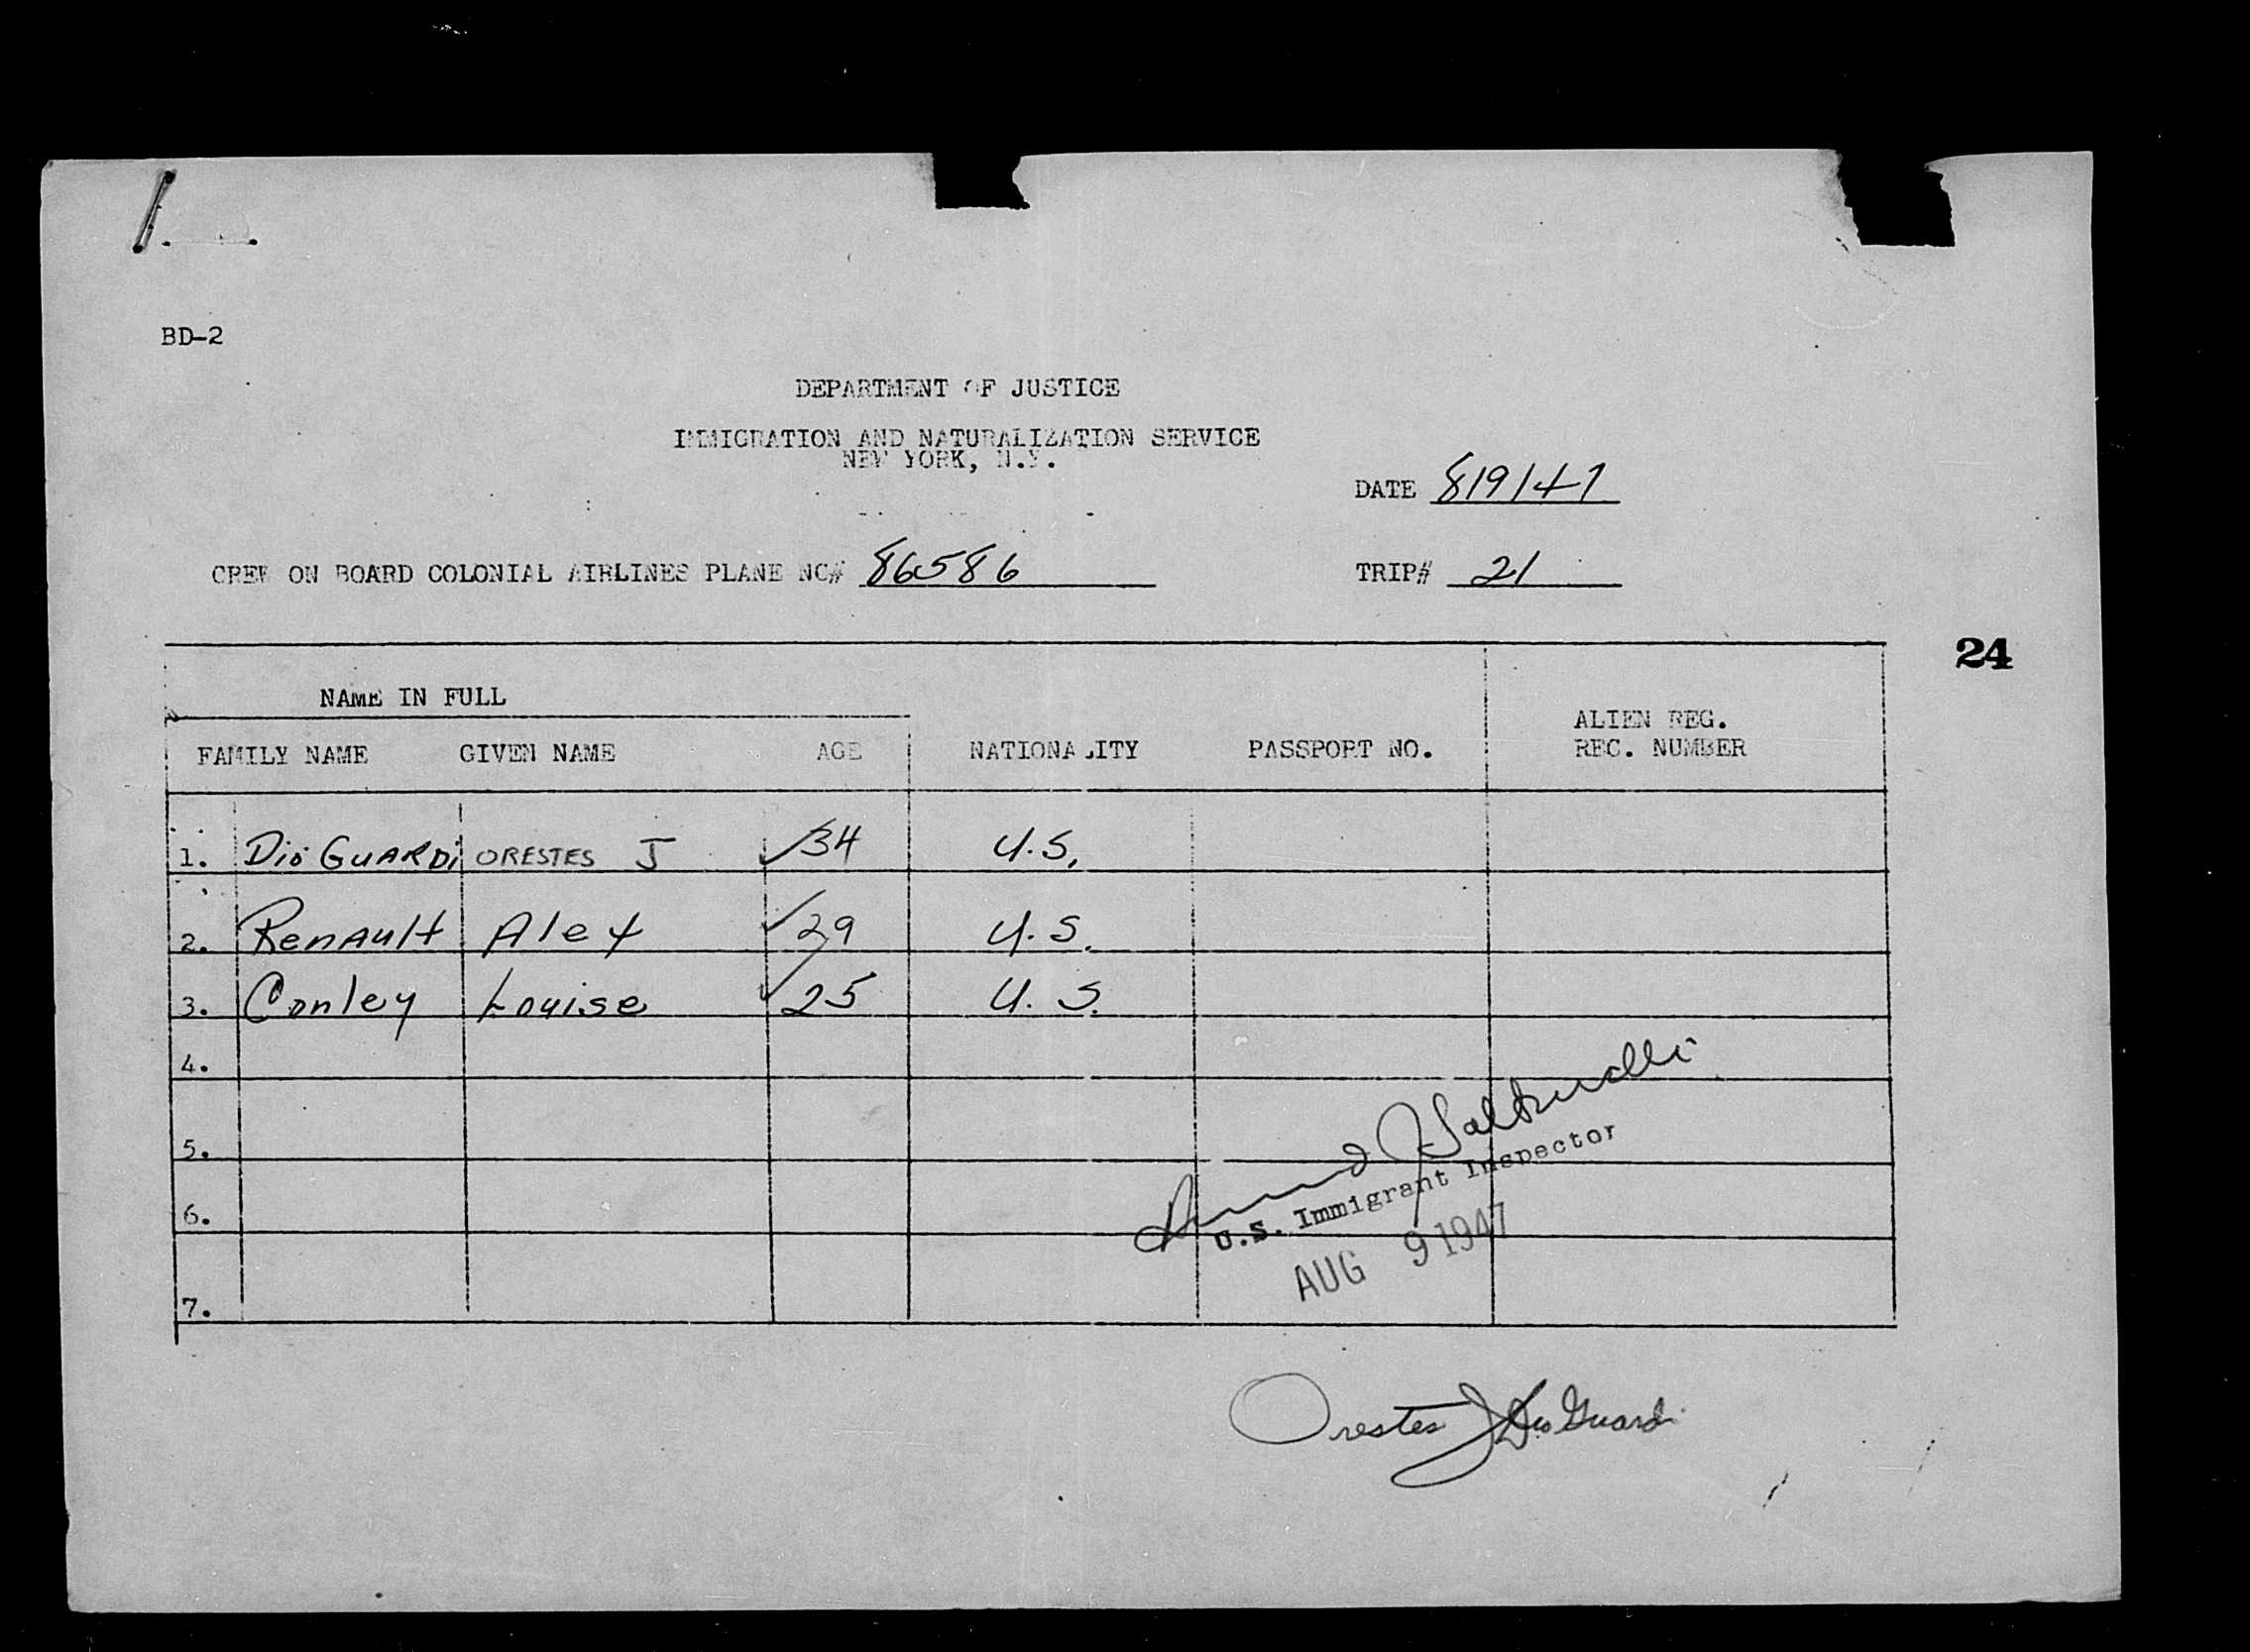 BD-2
DEPARTMENT OF JUSTICE
IMMIGRATION AND NATURALIZATION SERVICE
NEW YORK, N.Y.
DATE 8/9/47
CREW ON BOARD COLONIAL AIRLINES PLANE NC# 86586 TRIP# 21
24
NAME IN FULL
FAMILY NAME GIVEN NAME AGE NATIONALITY PASSPORT NO. ALIEN REG. REC. NUMBER
1. Dio GUARDi ORESTES J 34 U.S.
2. Renault Alex 29 U.S.
3. Conley Louise 25 U.S.
4.
5.
6.
7.
U.S. Immigrant Inspector
AUG 9 1947
Orestes J DioGuardi